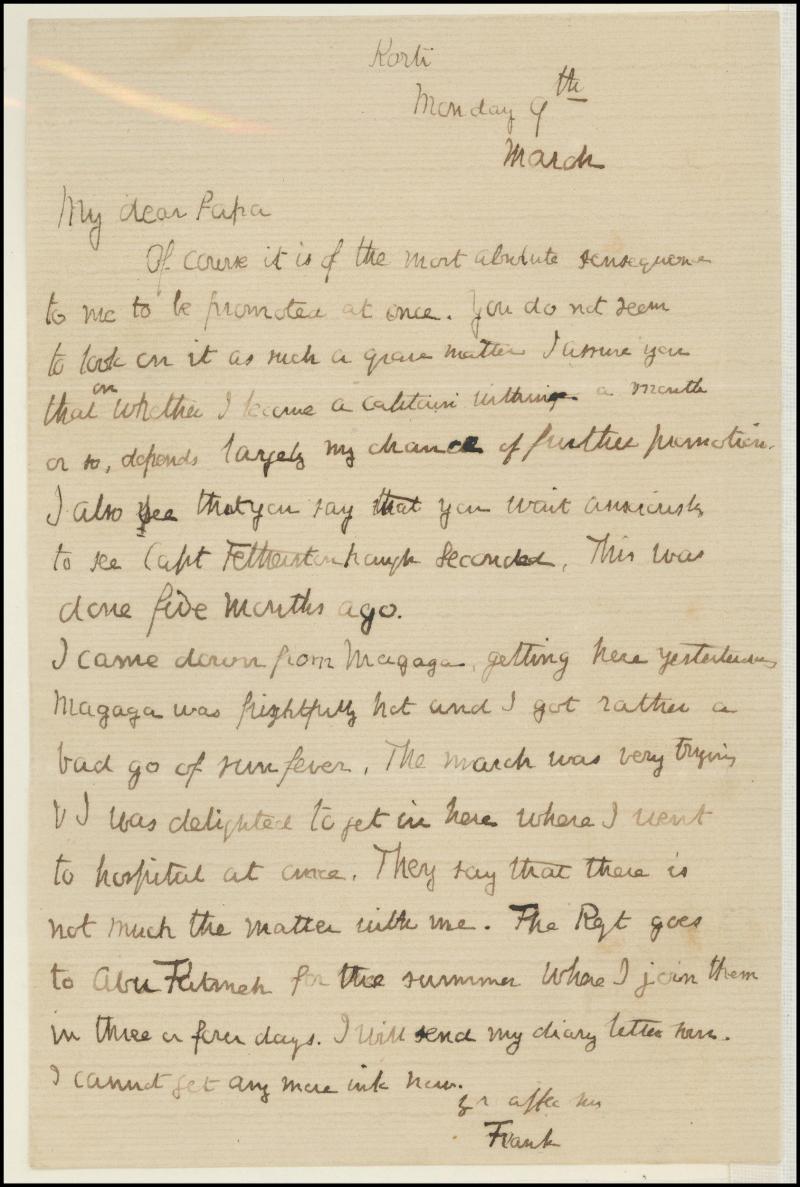 Korti
Monday 9th
March
My dear Papa
Of course it is of the most absolute consequence
to me to be promoted at once. You do not seem
to look on it as such a grave matter I assure you
that on whether I become a captain within a month
or so, depends largely my chance of further promotion.
I also see that you say that you wait anxiously
to see Capt Fetherstonhaugh seconded. This was
done five months ago.
I came down from Magaga, getting here yesterday
Magaga was frightfully hot and I got rather a
bad go of sun fever. The march was very trying
& I was delighted to get in here where I went
to hospital at once. They say that there is
not much the matter with me. The Regt goes
to Abu Fatmeh for the summer where I join them
in three or four days. I will send my diary letter
I cannot get any more ink now.
yr affec son
Frank